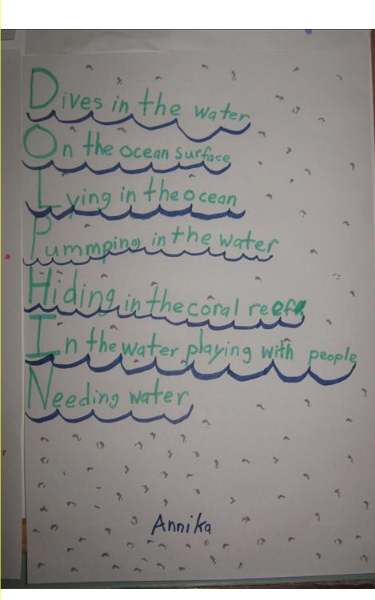 Dives in the water
On the ocean surface
Lying in the ocean
Pummping in the water
Hiding in the coral reef
In the water playing with people
Needing water
Annika